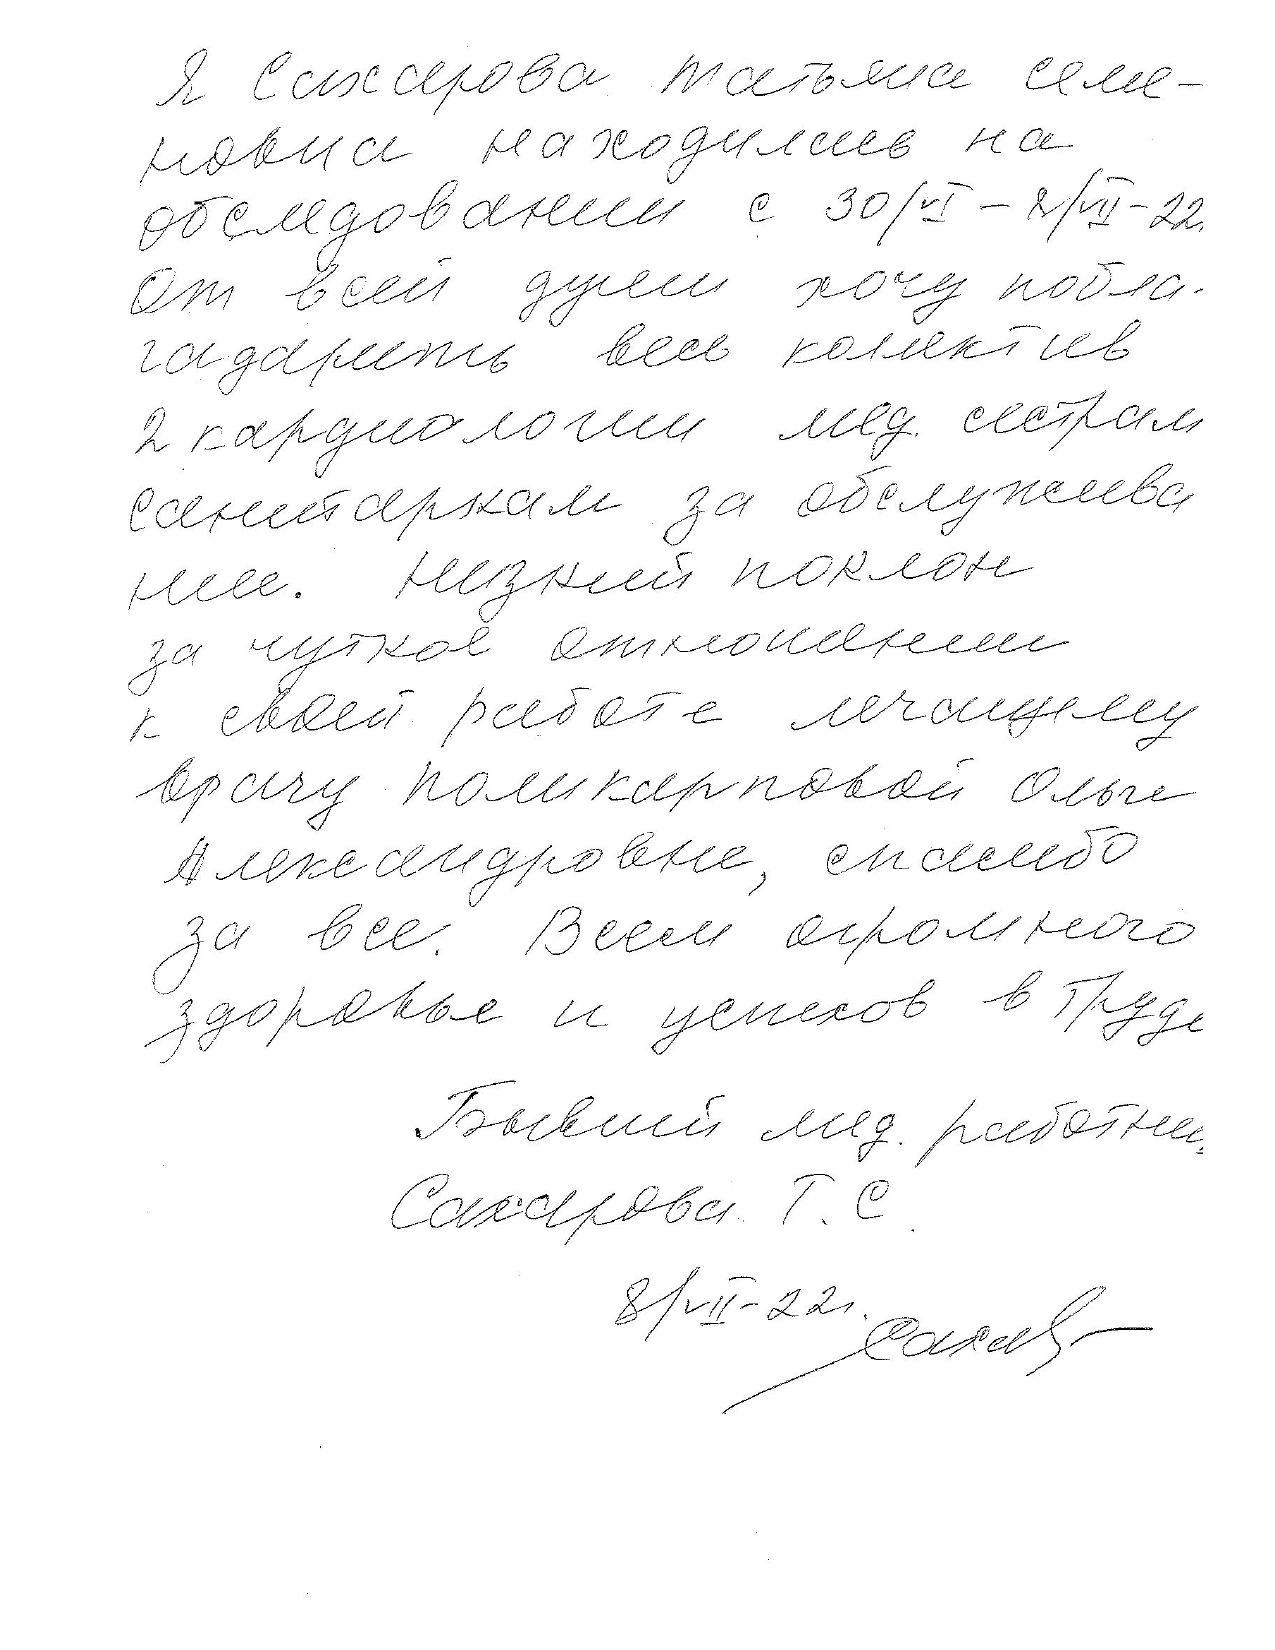 Я Сахарова Татьяна Семе-
новна находилась на
обследовании с 30/VI – 8/VII-22.
От всей души хочу побла-
гадарить весь колектив
2 кардиологии мед. сестрам
санитаркам за обслужива
ние. Низкий поклон
за чуткое отношении
к своей работе лечащему
врачу Поликарповой Ольге
Александровне, спасибо
за все. Всем огромного
здоровье и успехов в труде
Бывший мед. работник
Сахарова Т. С.
8/VII-22г.